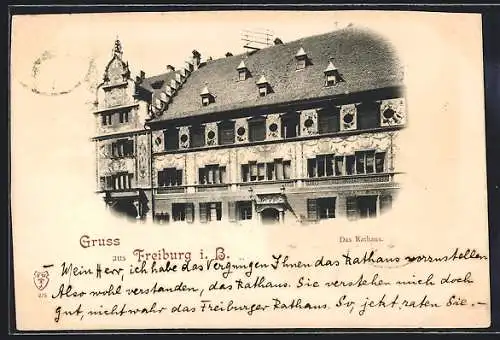 Gruss
aus Freiburg i. B.
Das Rathaus.
— Mein Herr, ich habe das Vergnugen Ihnen das Rathaus vorzustellen
Also wohl verstanden, das Rathaus. Sie verstehen mich doch
gut, nicht wahr das Freiburger Rathaus. So, jetzt raten Sie. —